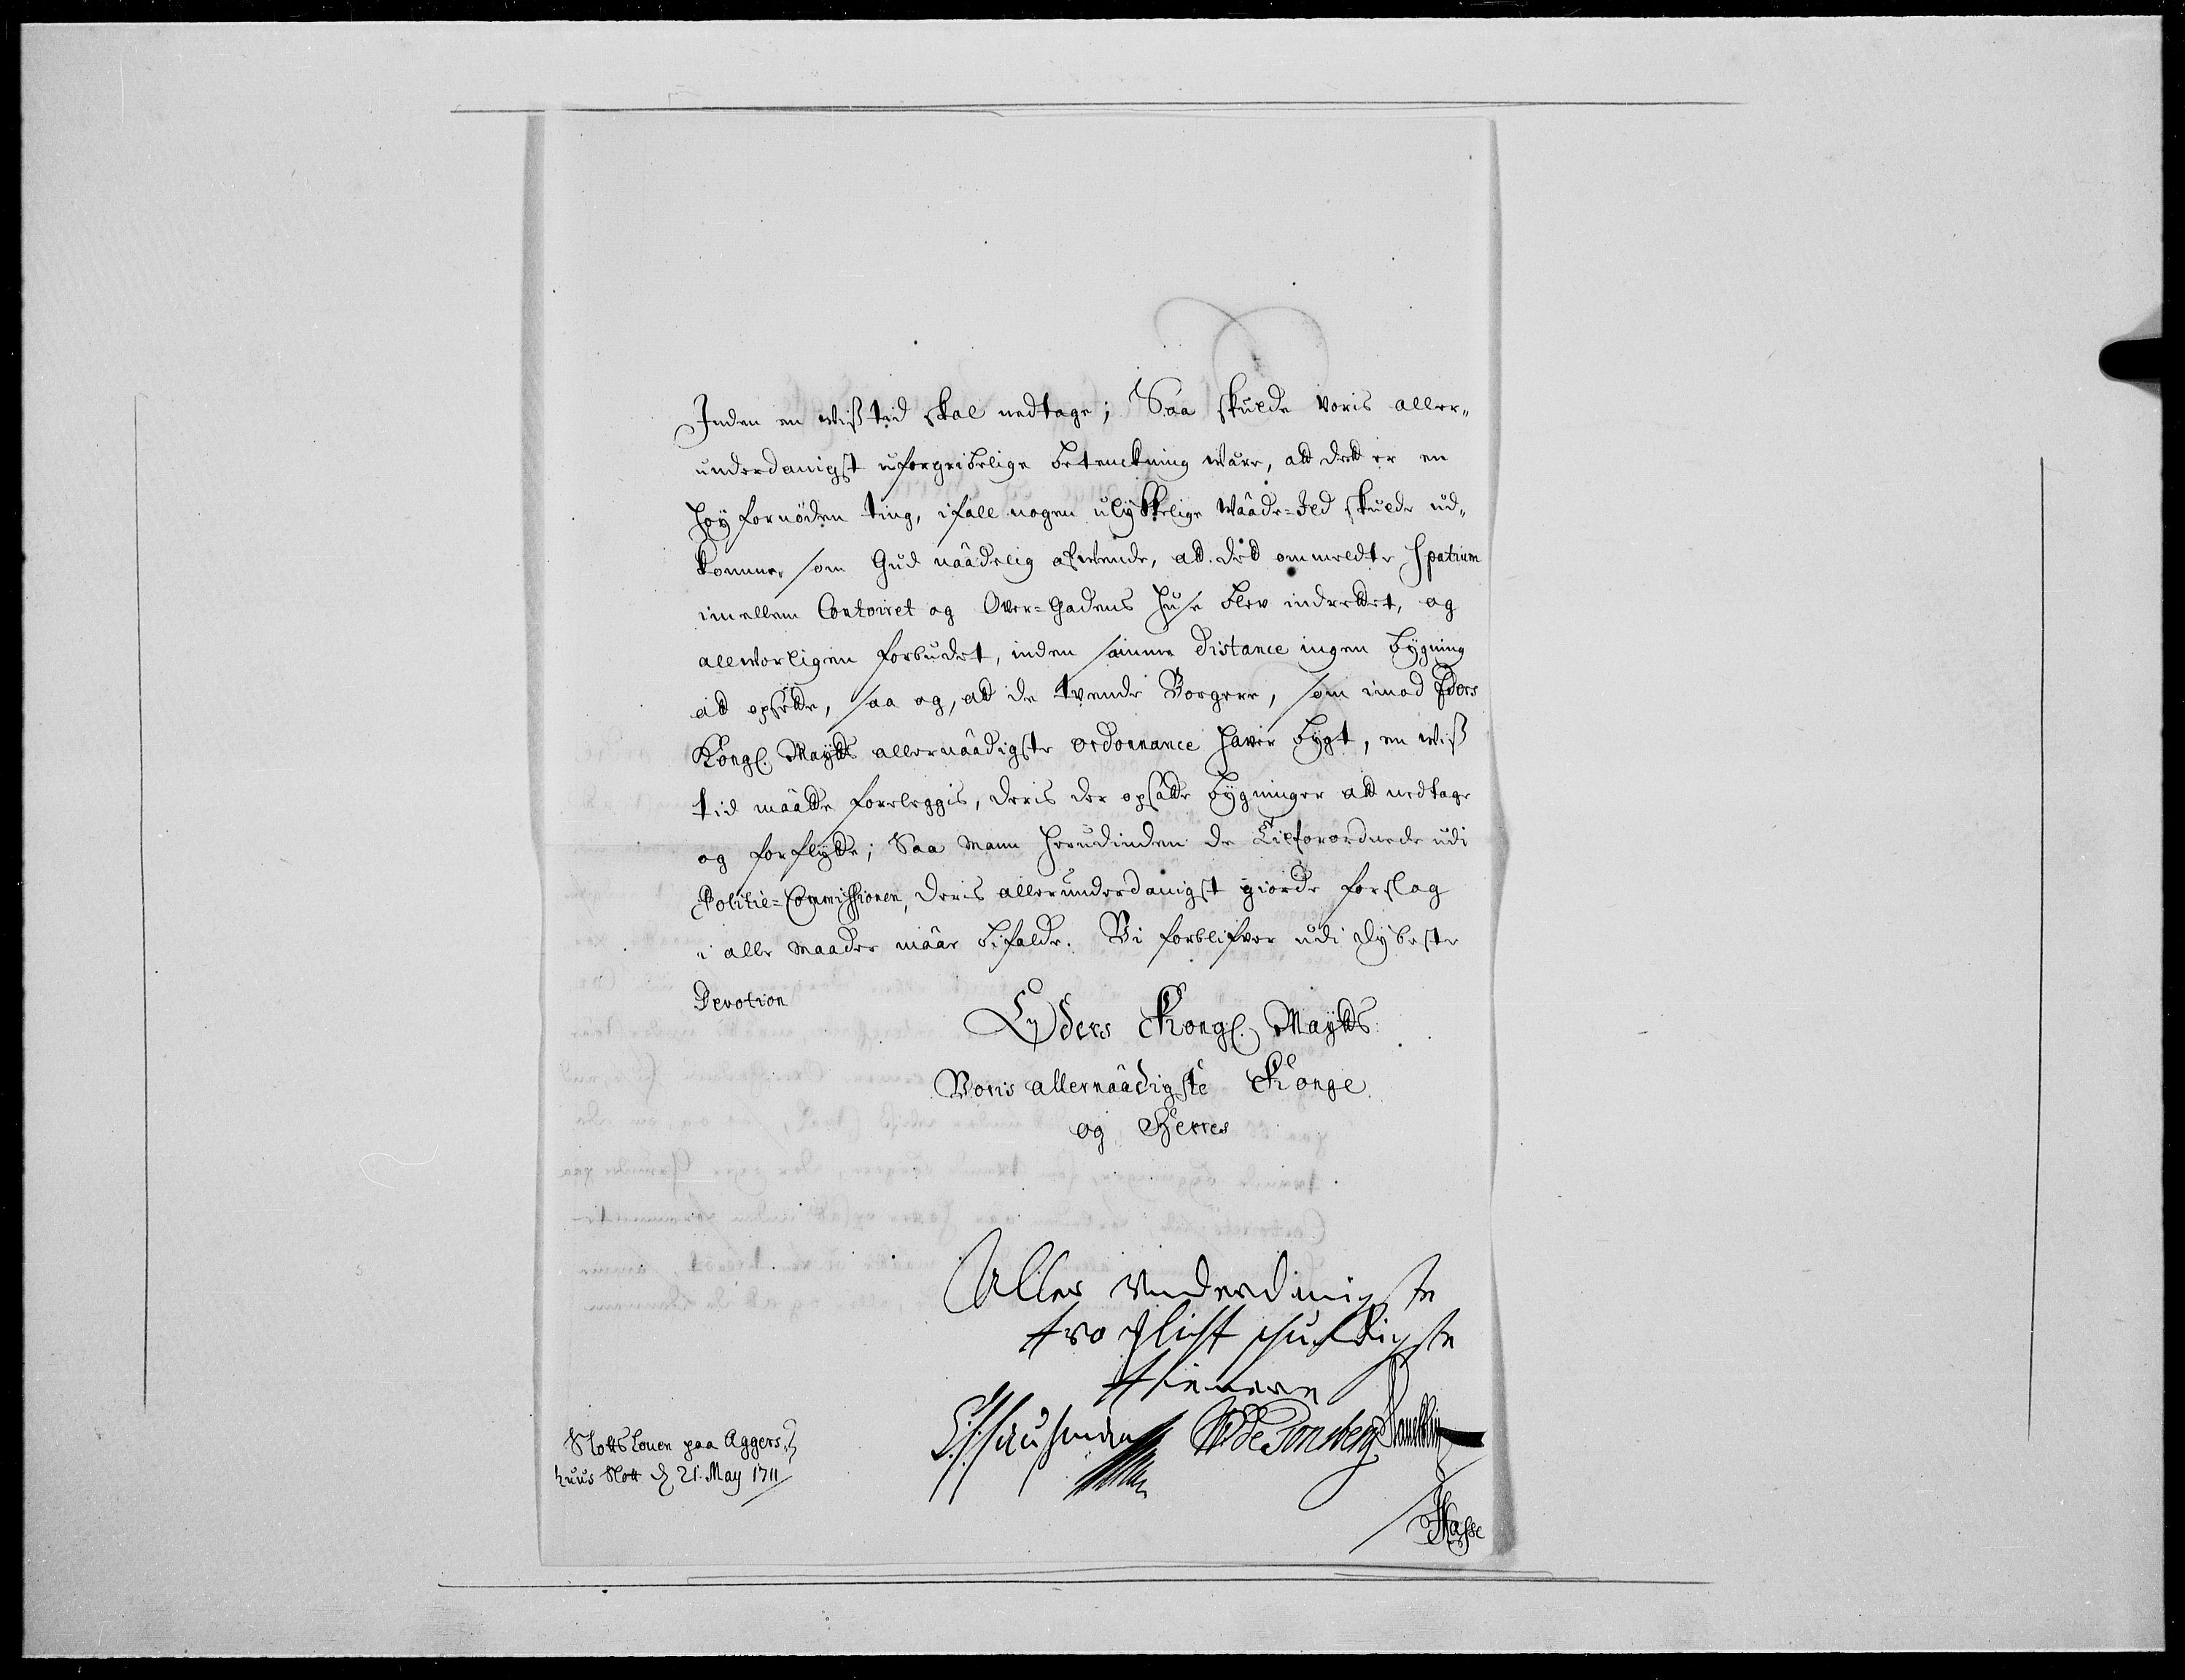 Inden en wiß tid skal nedtage; Saa skulde voris aller„
underdanigst uforgribelige betenckning være, att dett er en
høy fornøden ting, ifall nogen ulykkelige Waade-Ild skulde ud„
komme, som Gud naadelig afwende, att dett ommeldte Spatium
imellem Contoiret og Over-Gadens huse blev indrettet, og
allworligen forbudet, inden samme distance ingen bygning
att opsette, saa og, att de tvende Borgere, som imod Eders
Kongl. Maytts allernaadigste ordonnance haver bygt, en wiß
tid maatte foreleggis, deris der opsatte bygninger att nedtage
og forflytte; Saa mann herudinden de Tilforordnede udi
Politie-Commissionen, deris allerunderdanigst giorde forslag
i alle maader maae bifalde. Vi forblifver udi dybeste
Devotion
Eders Kongl. Maytts
Voris allernaadigste Konge
og Herres
Aller underdanigste
tro pligt schuldigste
tienere
FDe Tonsberg
Hasse
Slottsloven paa Aggers„
huus Slott d 21. May 1711